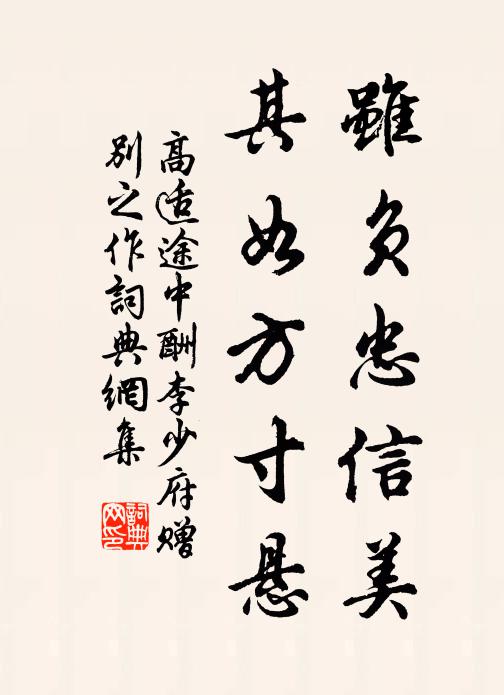 雖負忠信美
其如方寸懸
高适途中酬李少府贈
別之作詞典網集
詞典
网印